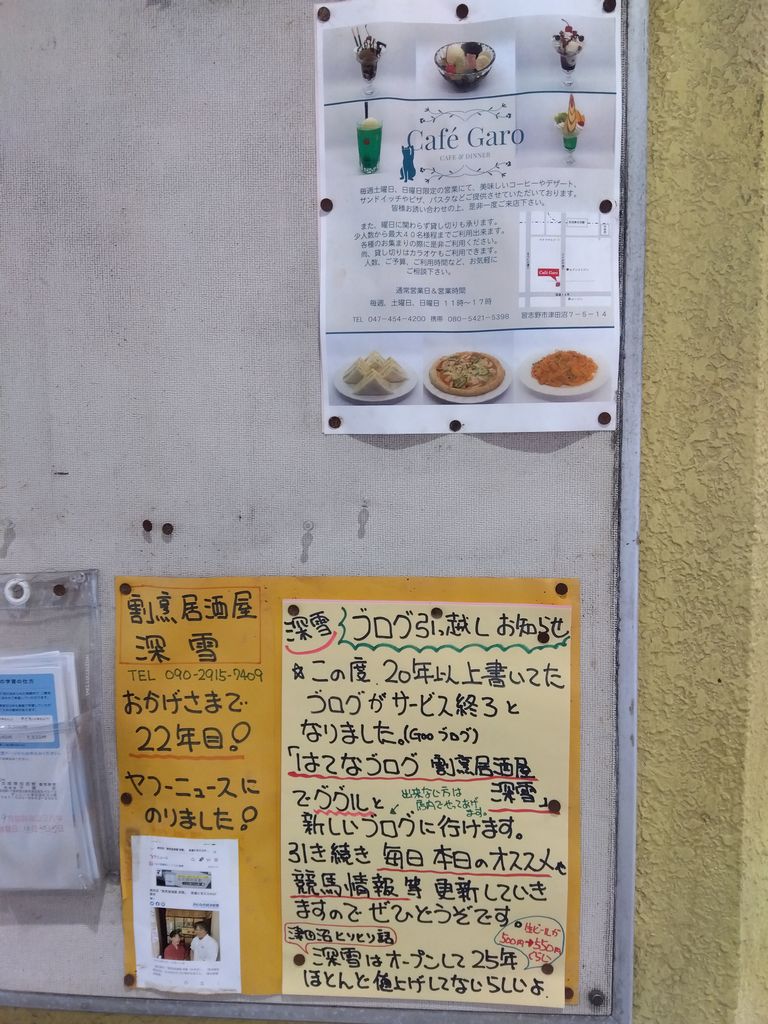 Café Garo
CAFE & DINNER
毎週土曜日、日曜日限定の営業にて、美味しいコーヒーやデザート、
サンドイッチやピザ、パスタなどご提供させていただいております。
皆様お誘い合わせの上、是非一度ご来店下さい。
また、曜日に関わらず貸し切りも承ります。
少人数から最大40名様程までご利用出来ます。
各種のお集まりの際に是非ご利用ください。
尚、貸し切りはカラオケもご利用できます。
人数、ご予算、ご利用時間など、お気軽に
ご相談下さい。
Café Garo
通常営業日&営業時間
毎週、土曜日、日曜日 11時〜17時
TEL 047-454-4200 携帯 080-5421-5398 習志野市津田沼7-5-14
割烹居酒屋
深雪
TEL 090-2915-7409
おかげさまで
22年目!
ヤフーニュースに
のりました!
深雪 ブログ引っ越しお知らせ
☆この度、20年以上書いてた
ブログがサービス終了と
なりました。(Gooブログ)
「はてなブログ 割烹居酒屋
深雪」
でググルと
出来ない方は
店内でやってあげ
ます。
新しいブログに行けます。
引き続き 毎日 本日のオススメや
競馬情報 等 更新していき
ますので ぜひどうぞです
生ビールが
500円→550円
くらい
津田沼とりとり話
深雪はオープンして25年
ほとんど値上げしてないらしいよ